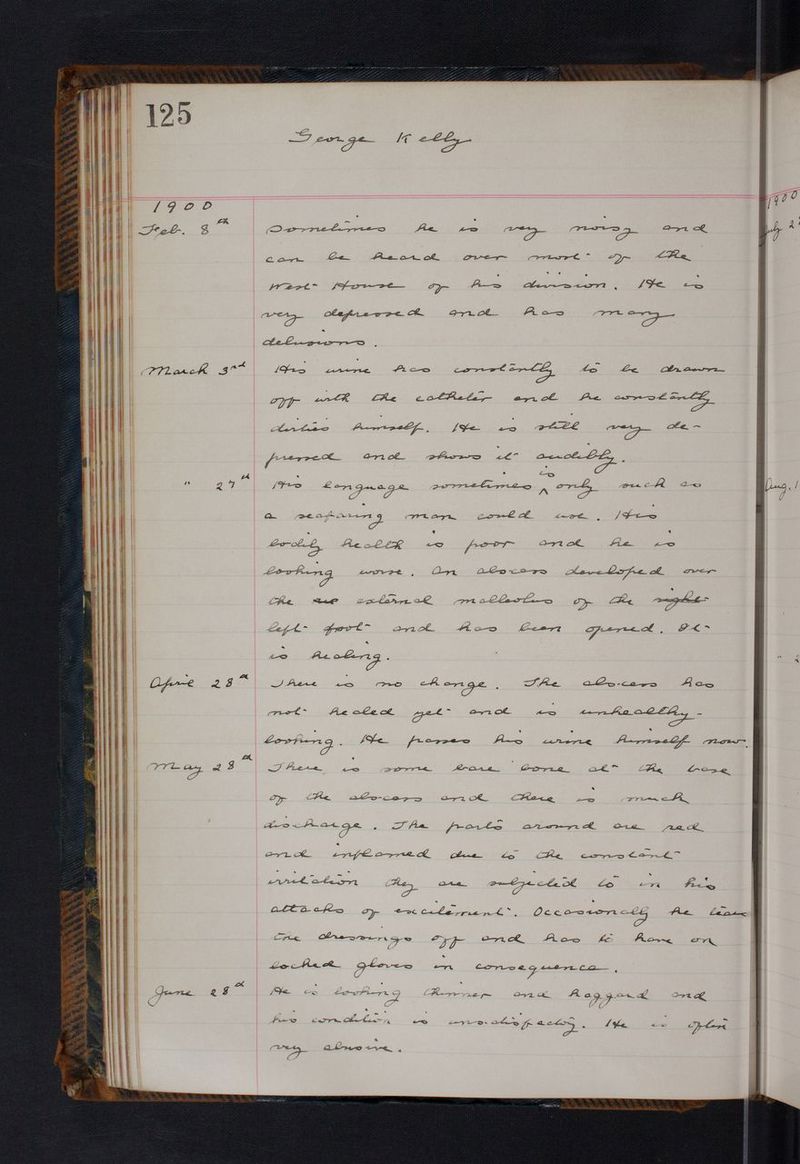 125
George Kelly
1900
Feb. 8th Sometimes he is very noisy and
can be heard over most of the
West House of his division. He is
very depressed and has many
delusions.
March 3rd His urine has constantly to be drawn
off with the catheter and he constantly
dirties himself. He is still very de-
pressed and shows it audibly.
" 27th His language sometimes is only such as
a seafaring man could use. His
bodily health is poor and he is
looking worse. An abscess developed over
the external malleolus of the right
left foot and has been opened. It
is healing.
April 28th There is no change. The abscess has
not healed yet and is unhealthy-
looking. He passes his urine himself now.
May 28th There is some bare bone at the base
of the abscess and there is much
discharge. The parts around are red
and inflamed due to the constant
irritation they are subjected to in his
attacks of excitement. Occasionally he tears
the dressings off and has to have on
locked gloves in consequence.
June 28th He is looking thinner and haggard and
his condition is unsatisfactory. He is often
very abusive.
1900
July 2
Aug. 1